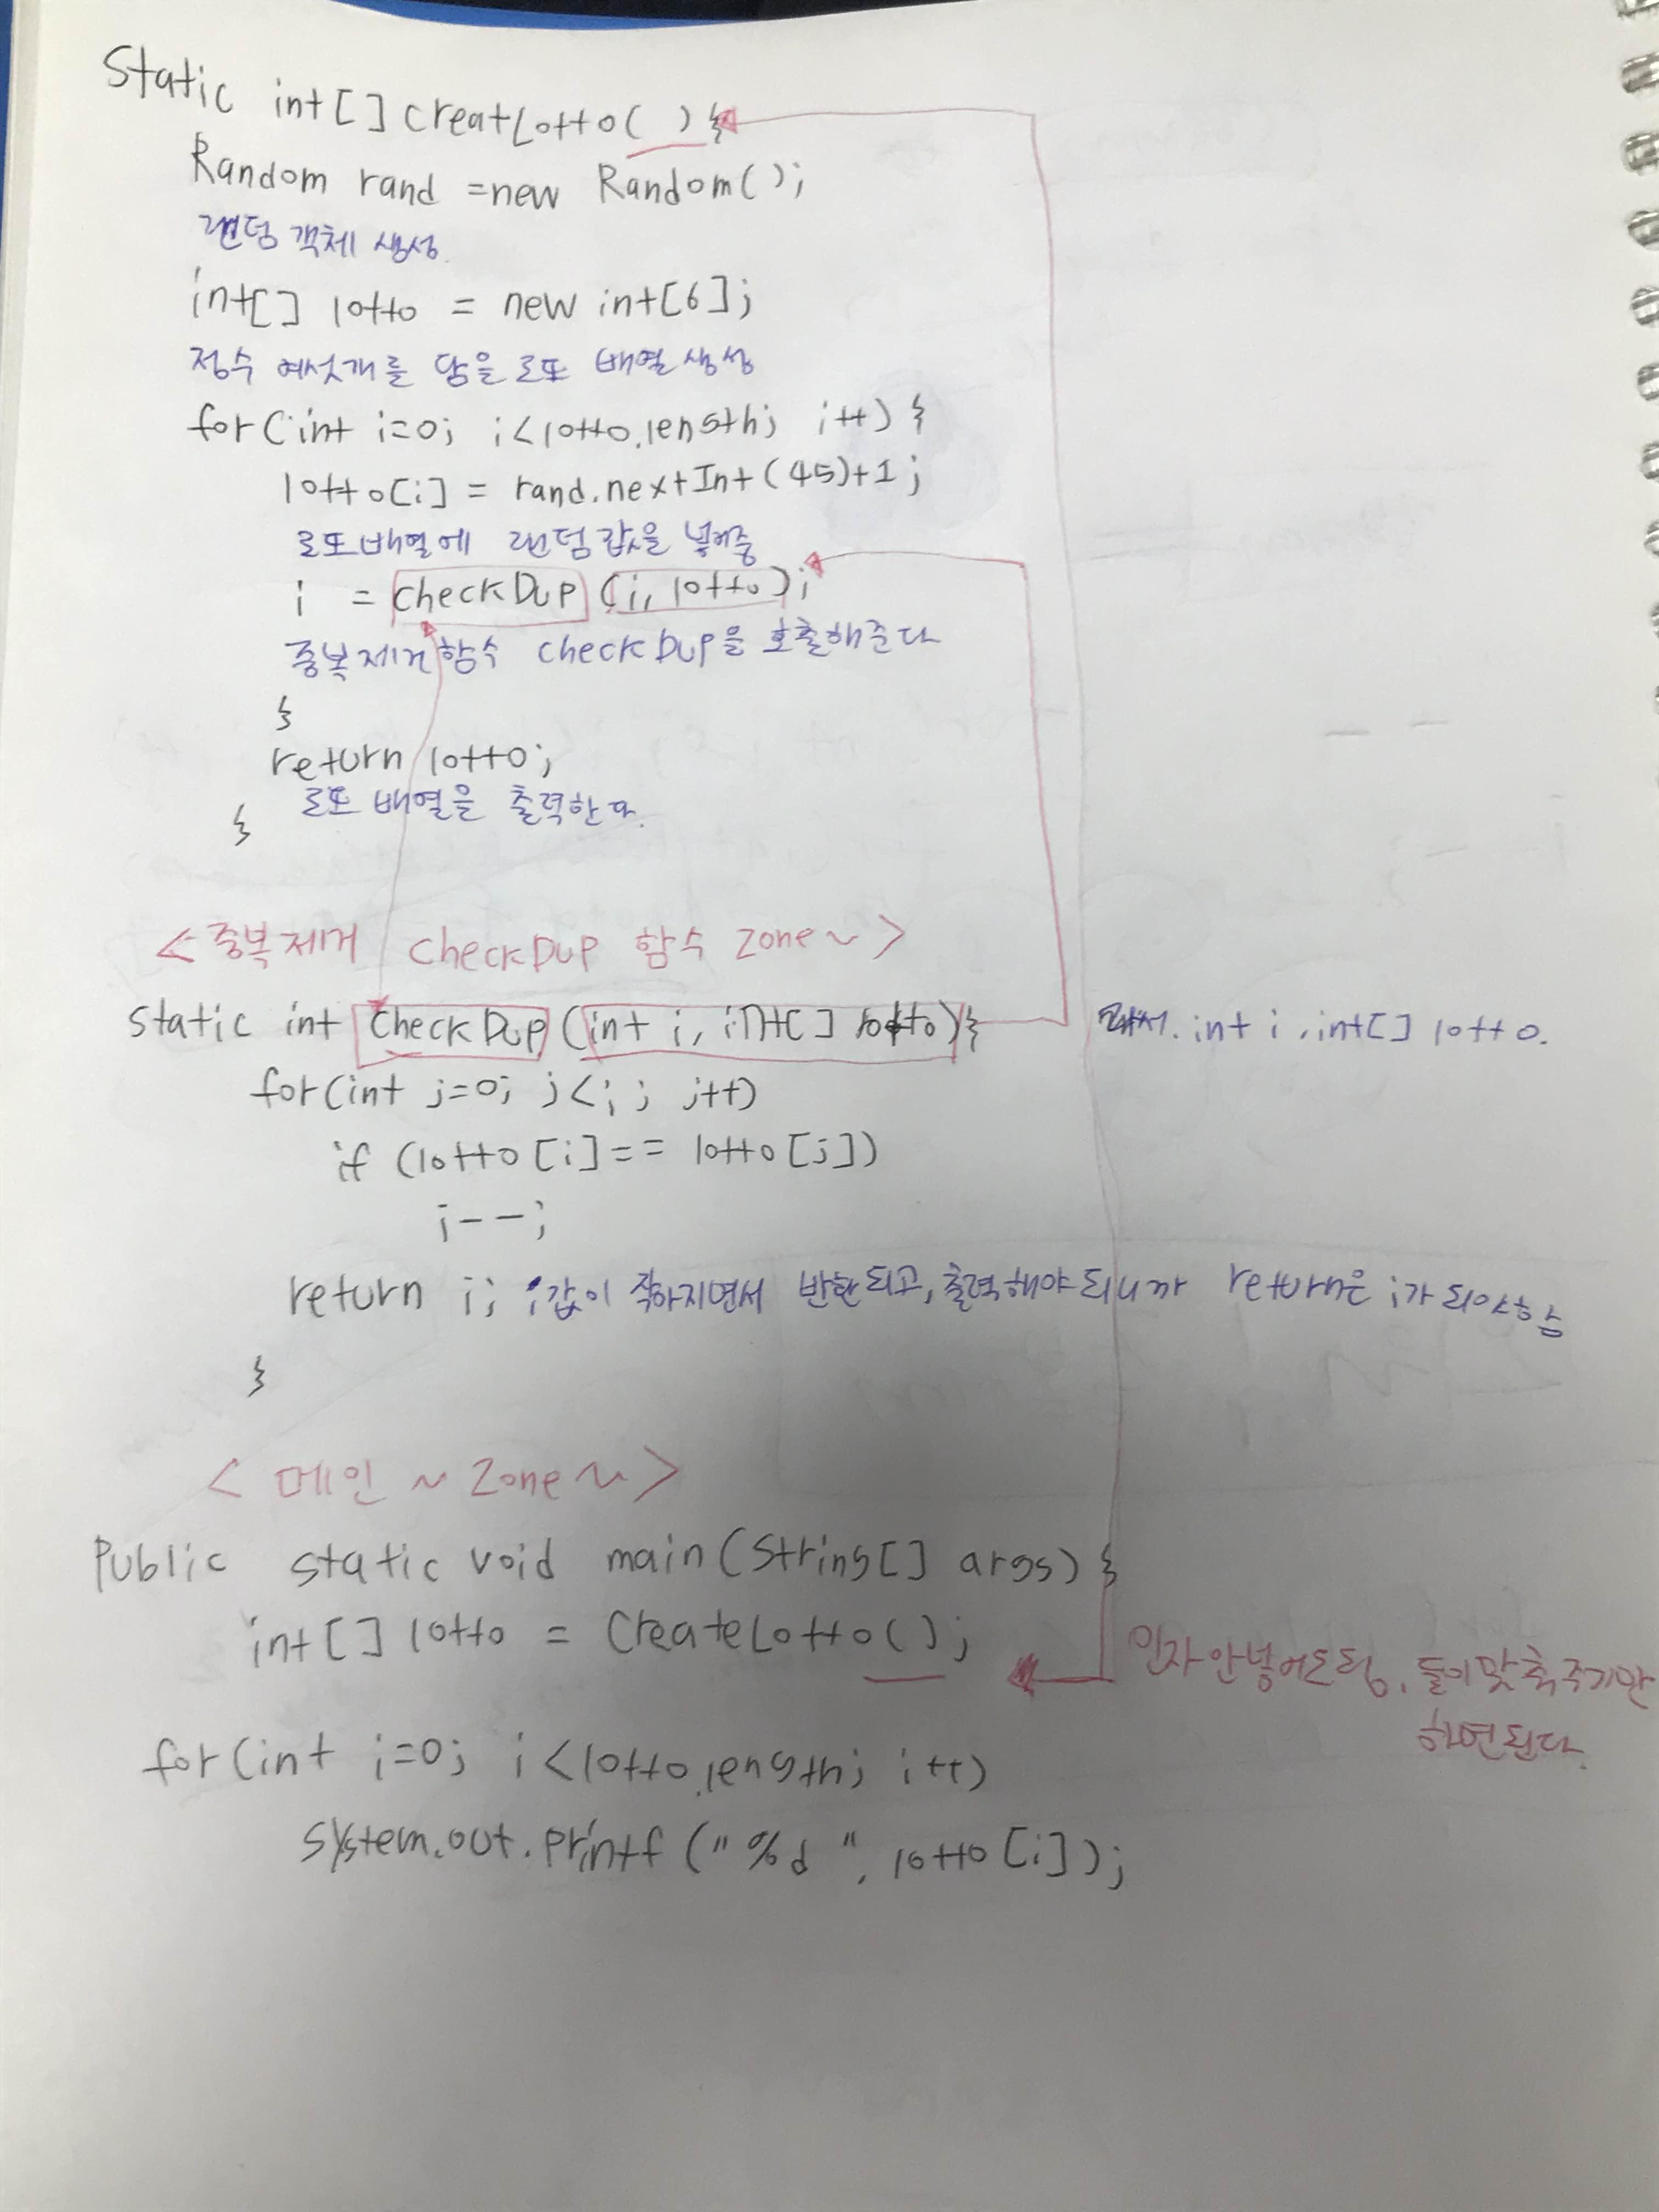 Static int[] creatLotto( ){
Random rand = new Random();
랜덤 객체 생성
int[] lotto = new int[6];
정수 여섯개를 담을 로또 배열 생성
for(int i=0; i<lotto.length; i++){
lotto[i] = rand.nextInt(45)+1;
로또배열에 랜덤 값을 넣어줌
i = checkDup (i, lotto);
중복제거 함수 checkDup을 호출해준다
}
return lotto;
로또 배열을 출력한다.
}
<중복제거 checkDup 함수 zone~>
static int checkDup (int i, int[] lotto){
int i, int[] lotto.
for(int j=0; j<i; j++)
if (lotto[i]== lotto[j])
i--;
return i; i값이 작아지면서 반환되고, 출력해야 되니까 return은 i가 되어야함
}
<메인~zone~>
Public static void main(String[] args){
int[] lotto = CreateLotto();
인자 안넣어도됨, 둘이 맞춰주기만
하면된다.
for(int i=0; i<lotto.length; i++)
System.out.printf("%d ", lotto[i]);